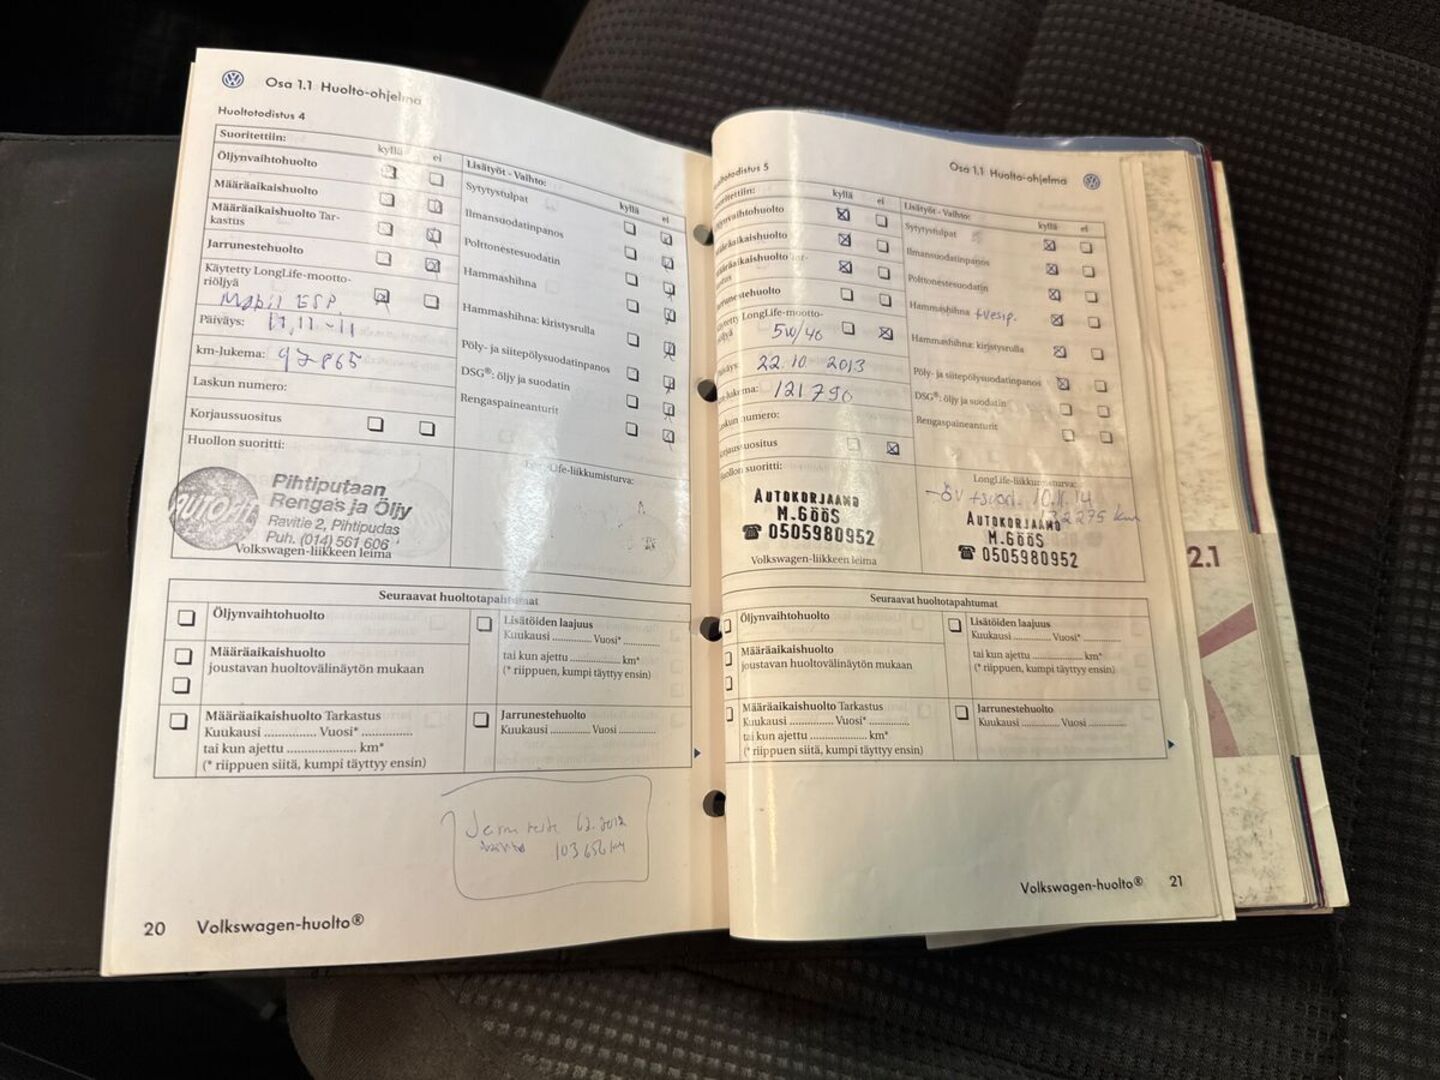 Osa 1.1 Huolto-ohjelma
Huoltotodistus 4
Suoritettiin:
kyllä ei
Öljynvaihtohuolto
Määräaikaishuolto
Määräaikaishuolto Tar-
kastus
Jarrunestehuolto
Käytetty LongLife-mootto-
riöljyä
Mobil ESP
Päiväys: 17.11-11
km-lukema: 97865
Laskun numero:
Korjaussuositus
Huollon suoritti:
Pihtiputaan
Rengas ja Öljy
Ravitie 2, Pihtipudas
Puh. (014) 561 606
Volkswagen-liikkeen leima
Lisätyöt - Vaihto:
kyllä ei
Sytytystulpat
Ilmansuodatinpanos
Polttonestesuodatin
Hammashihna
Hammashihna: kiristysrulla
Pöly- ja siitepölysuodatinpanos
DSG®: öljy ja suodatin
Rengaspaineanturit
LongLife-liikkumisturva:
Seuraavat huoltotapahtumat
Öljynvaihtohuolto
Määräaikaishuolto
joustavan huoltovälinäytön mukaan
Määräaikaishuolto Tarkastus
Kuukausi .............. Vuosi* ..............
tai kun ajettu ................... km*
(* riippuen siitä, kumpi täyttyy ensin)
Lisätöiden laajuus
Kuukausi .............. Vuosi* .............
tai kun ajettu .................. km*
(* riippuen, kumpi täyttyy ensin)
Jarrunestehuolto
Kuukausi .............. Vuosi .............
103656 km
20 Volkswagen-huolto®
Osa 1.1 Huolto-ohjelma
kyllä ei
Määräaikaishuolto
5W/40
22.10 2013
121790
AUTOKORJAAMO
M.GööS
☎ 0505980952
Volkswagen-liikkeen leima
Lisätyöt - Vaihto:
kyllä ei
Sytytystulpat
Ilmansuodatinpanos
Polttonestesuodatin
Hammashihna +vesip.
Hammashihna: kiristysrulla
Pöly- ja siitepölysuodatinpanos
DSG®: öljy ja suodatin
Rengaspaineanturit
LongLife-liikkumisturva:
-ÖV +suod. 10.11.14
132275 km
AUTOKORJAAMO
M.GööS
☎ 0505980952
Seuraavat huoltotapahtumat
Öljynvaihtohuolto
Määräaikaishuolto
joustavan huoltovälinäytön mukaan
Määräaikaishuolto Tarkastus
Kuukausi .............. Vuosi* .............
tai kun ajettu ................... km*
(* riippuen siitä, kumpi täyttyy ensin)
Lisätöiden laajuus
Kuukausi ............. Vuosi* .............
tai kun ajettu .................. km*
(* riippuen, kumpi täyttyy ensin)
Jarrunestehuolto
Kuukausi ............. Vuosi .............
Volkswagen-huolto® 21
2.1